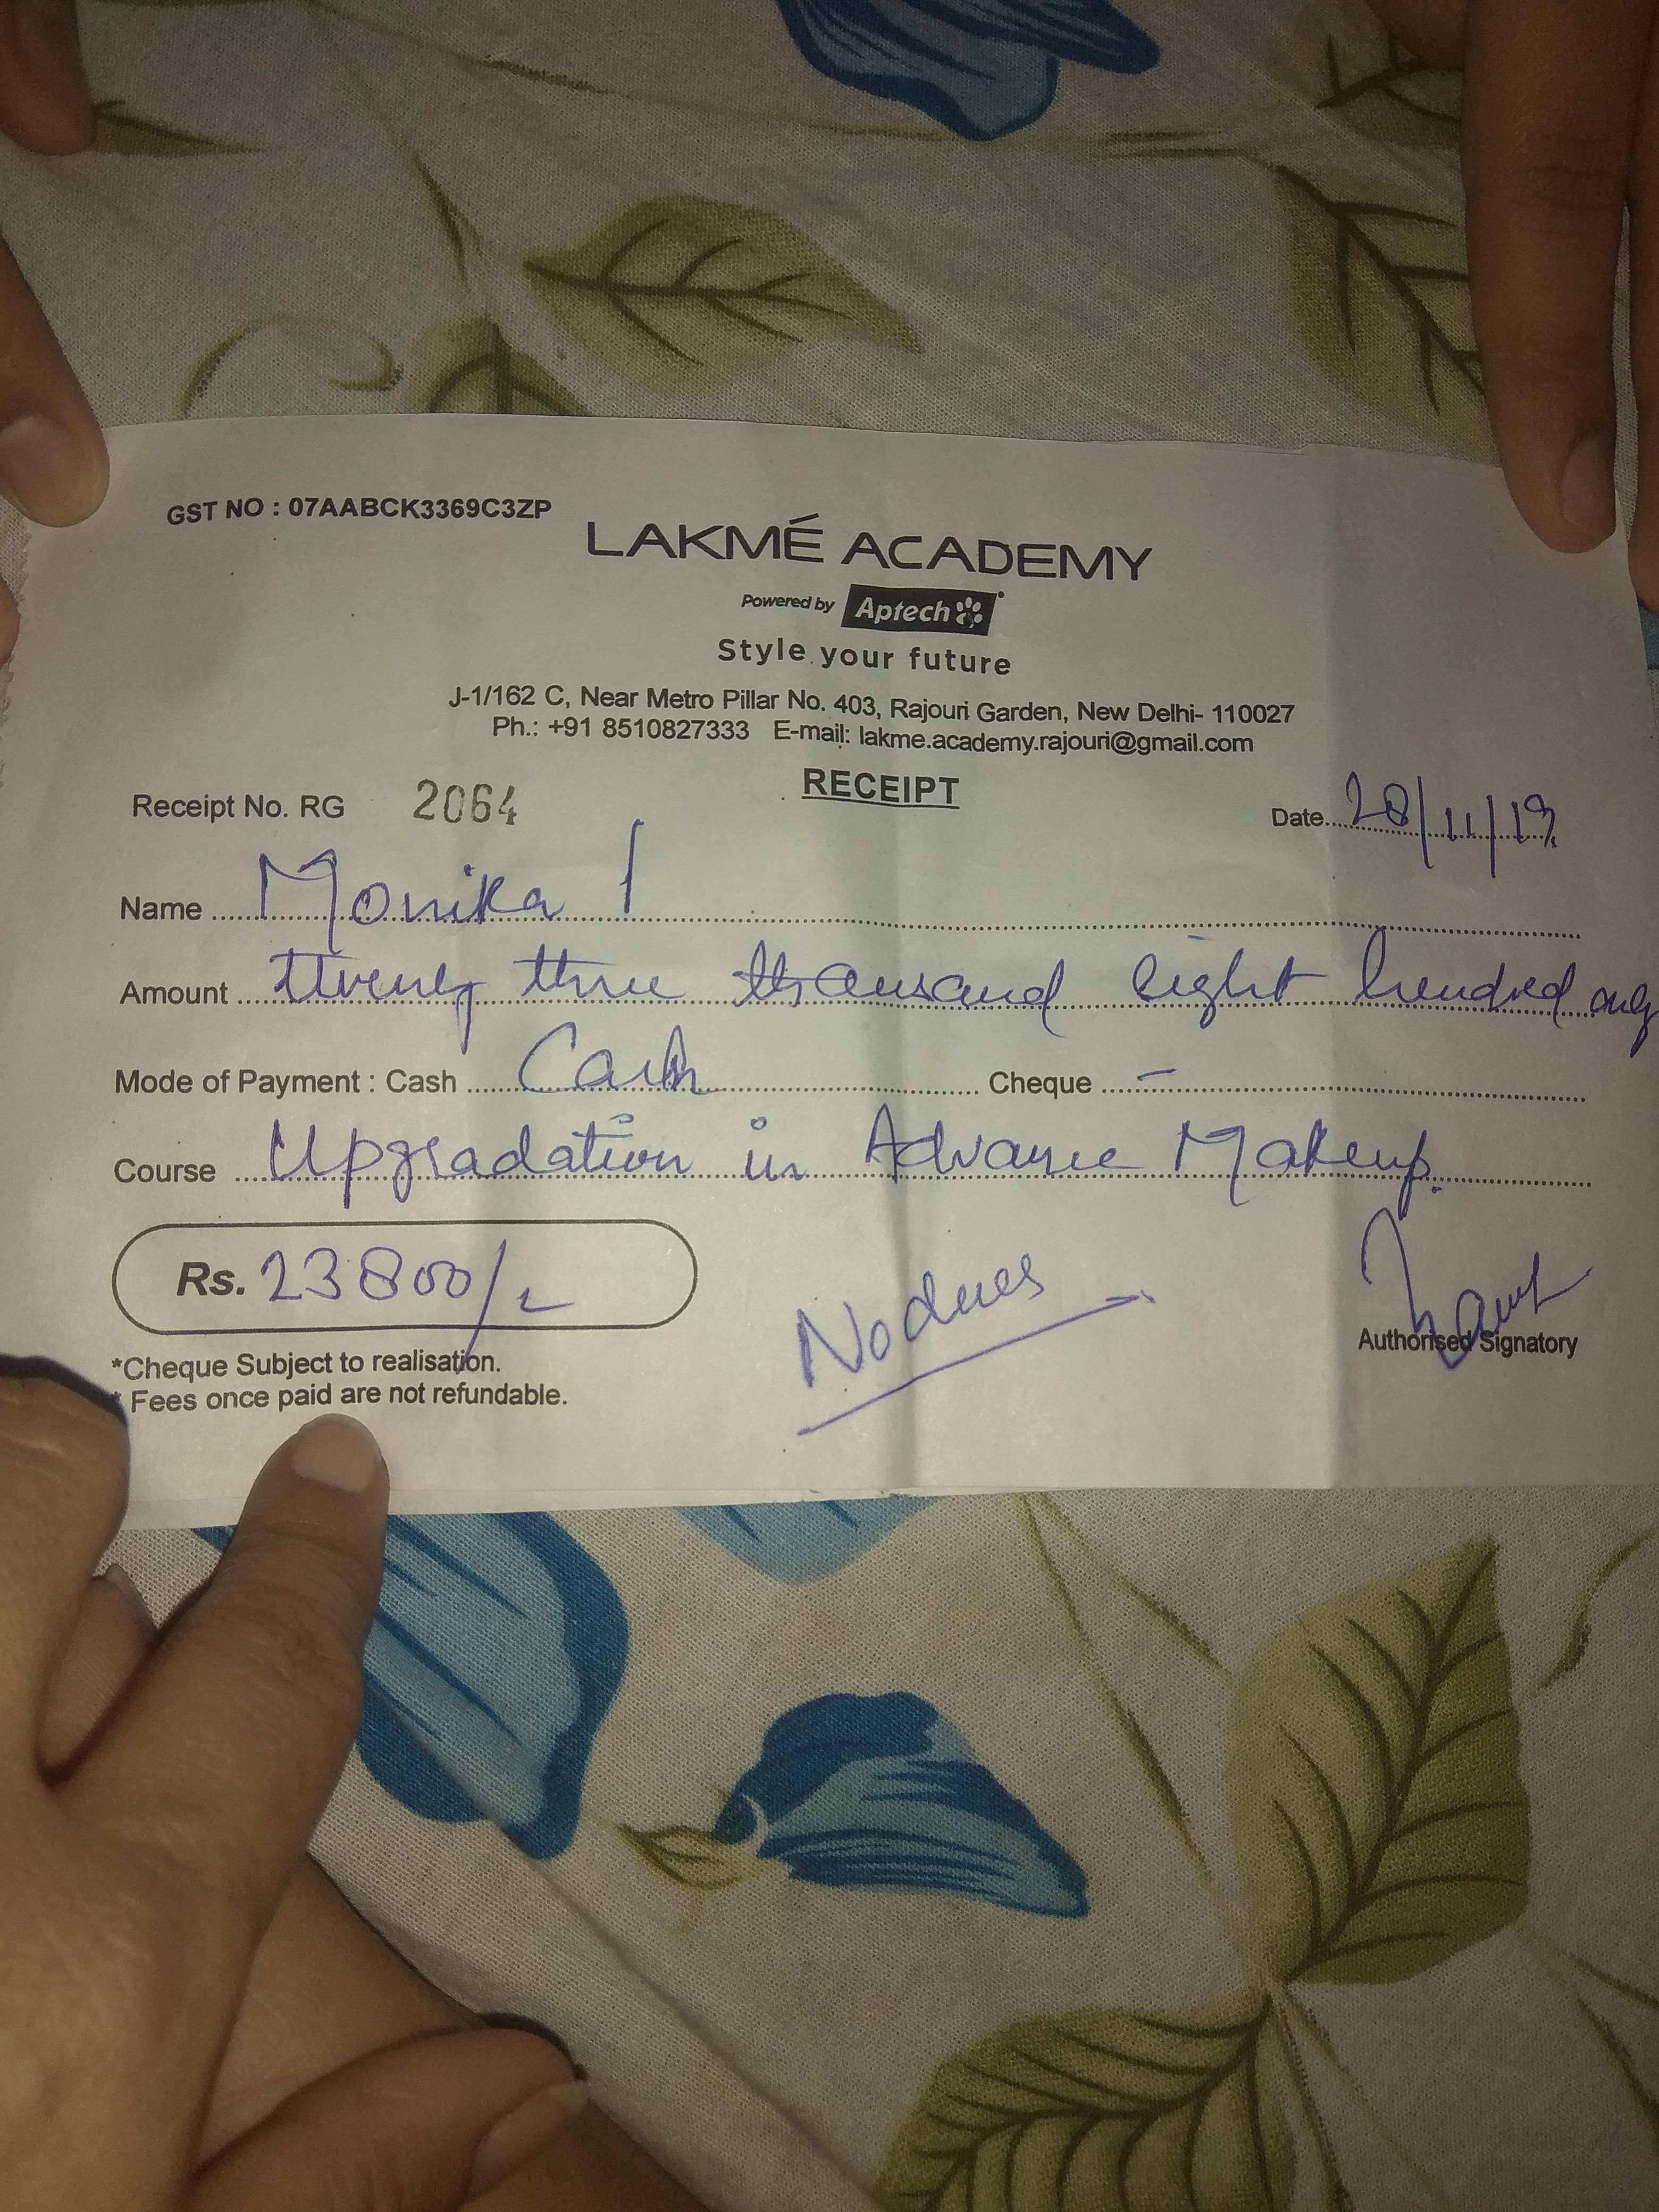 GST NO : 07AABCK3369C3ZP
LAKMÉ ACADEMY
Powered by Aptech
Style your future
J-1/162 C, Near Metro Pillar No. 403, Rajouri Garden, New Delhi- 110027
Ph.: +91 8510827333 E-mail: lakme.academy.rajouri@gmail.com
RECEIPT
Receipt No. RG 2064 Date 28/11/19
Name Monika
Amount Twenty three thousand eight hundred only
Mode of Payment : Cash Cash Cheque –
Course Upgradation in Advance Makeup.
Rs. 23800/-
No dues
Authorised Signatory
*Cheque Subject to realisation.
* Fees once paid are not refundable.